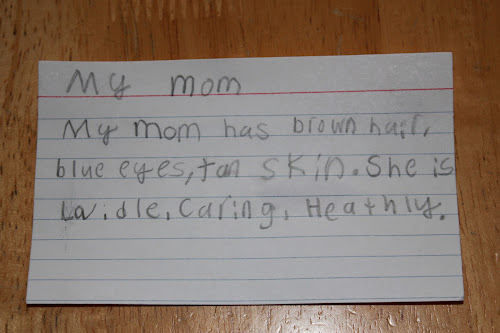 My mom
My mom has brown hair,
blue eyes, tan skin. She is
Caring, Heathly.